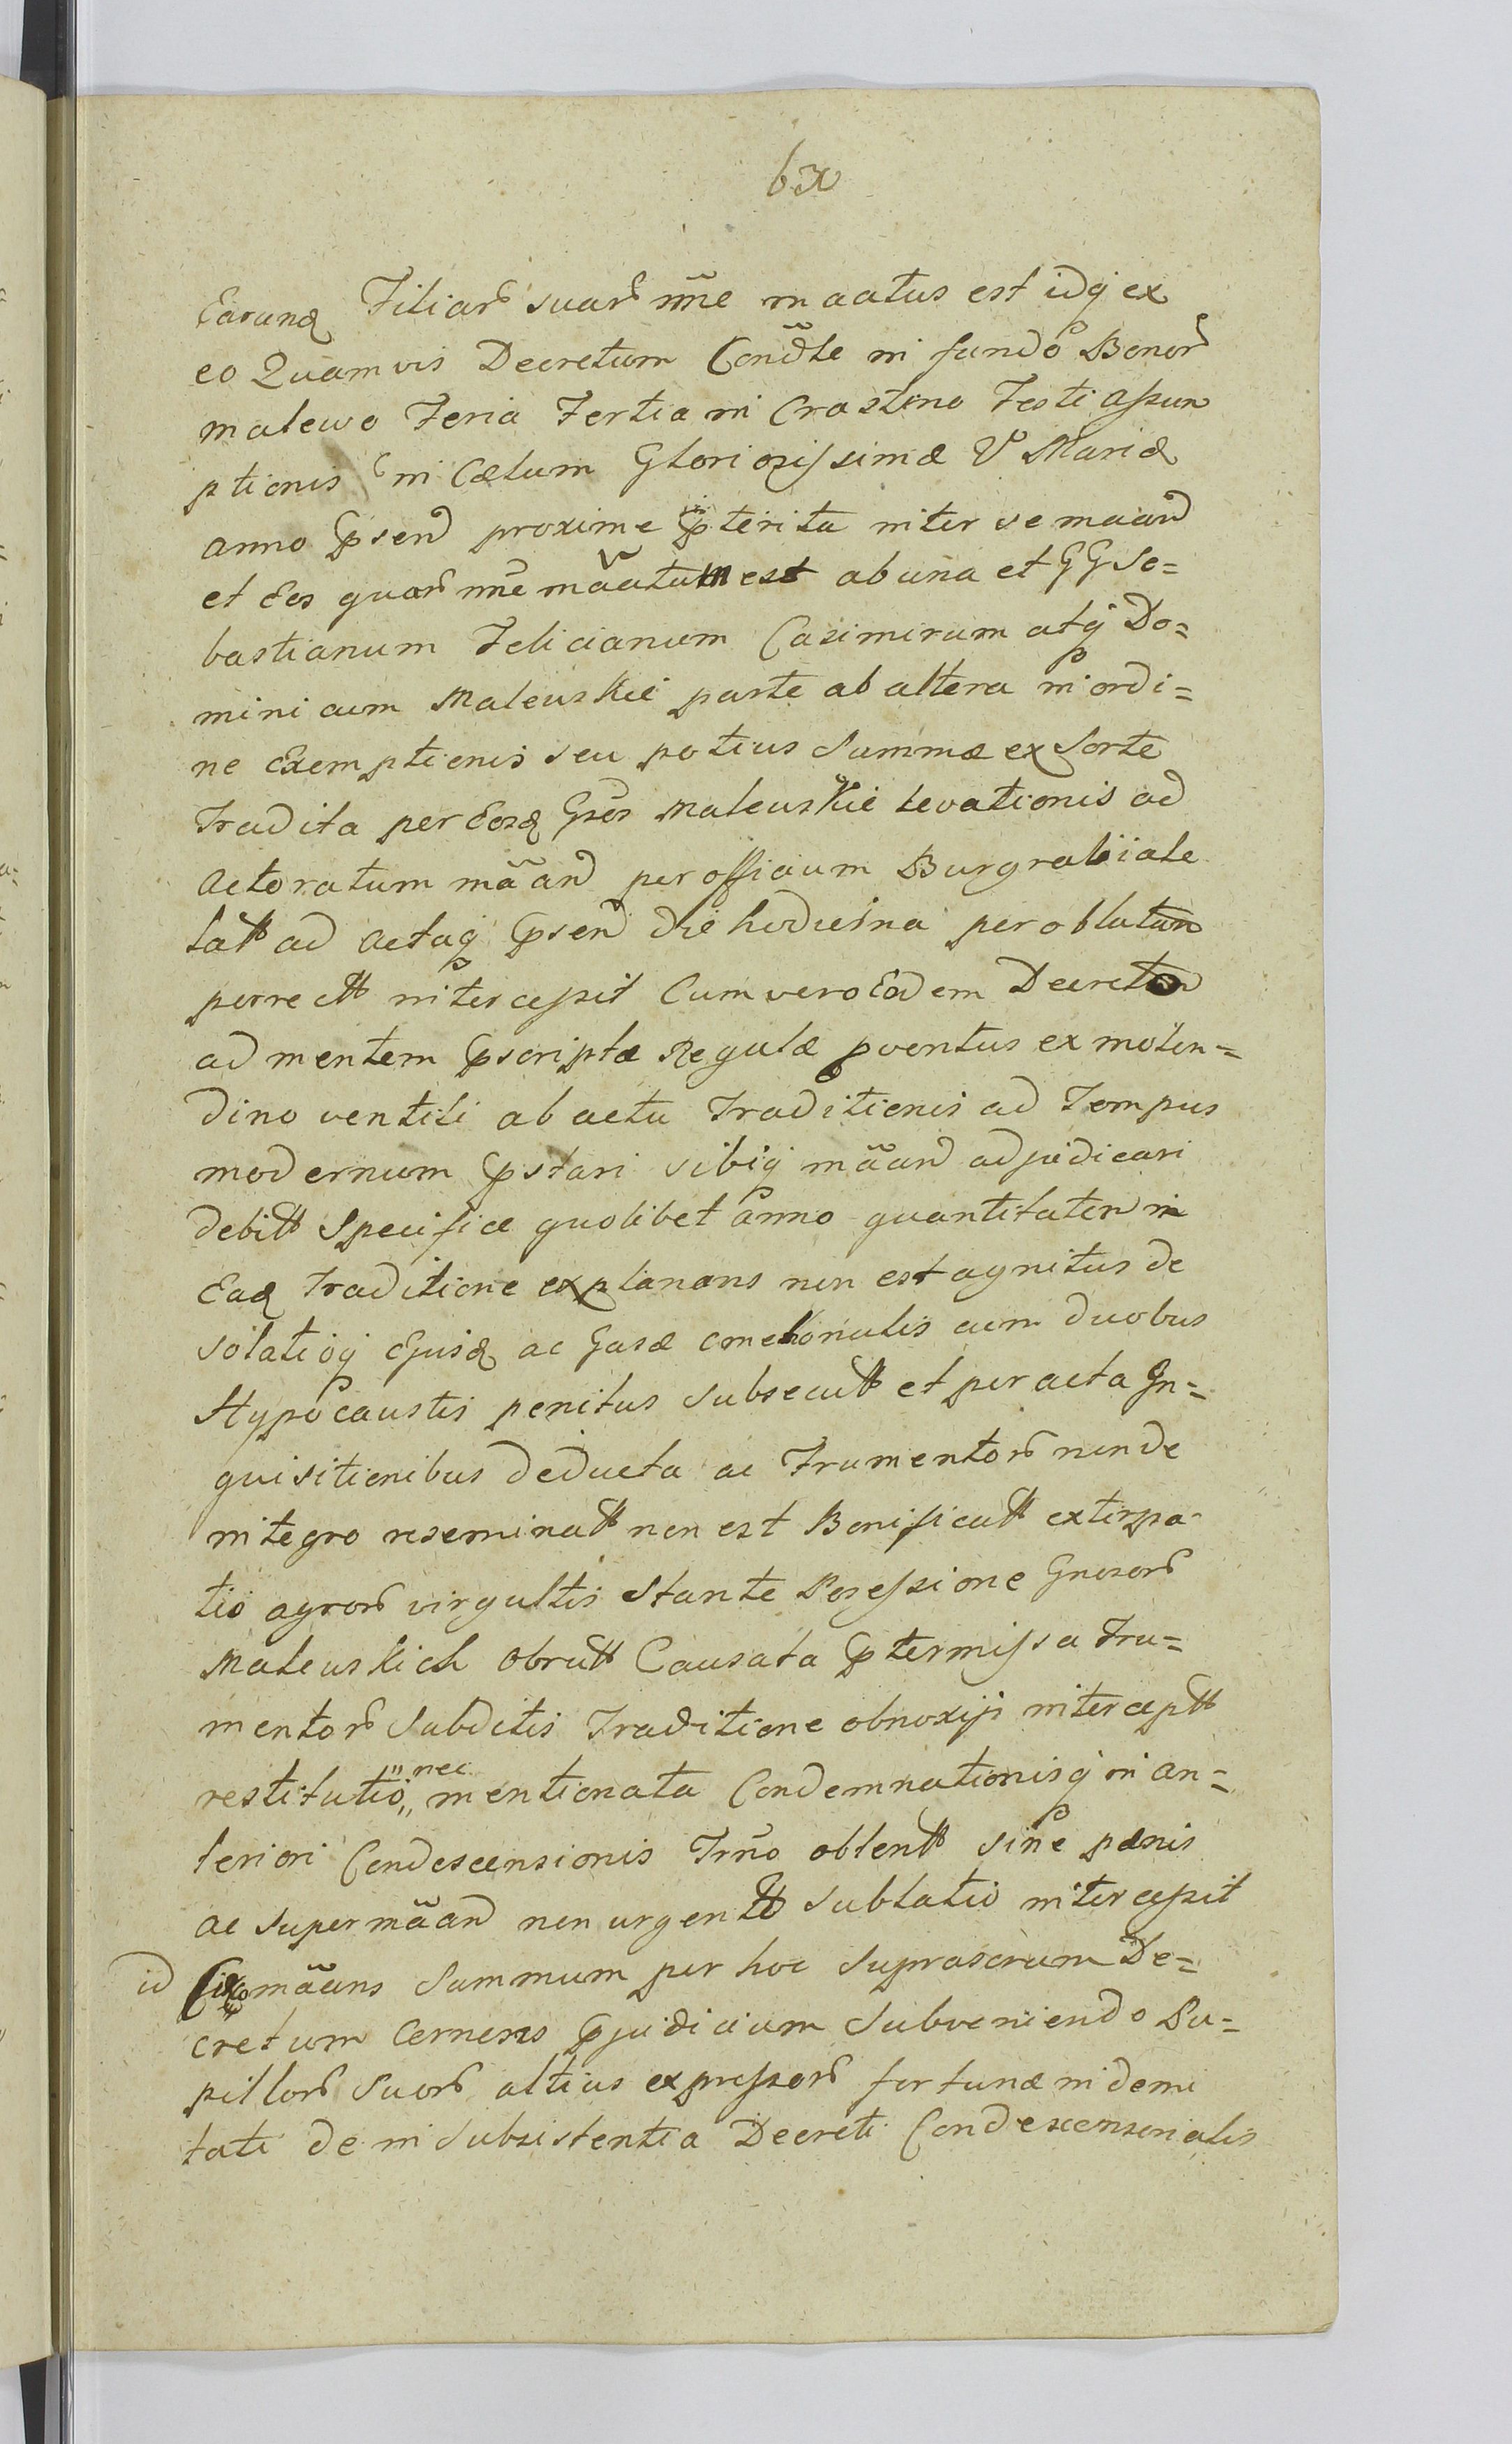 bx
Earunq Filiar suar nñe maatus est idq ex
eo Quamvis Decretum Condle in fundo Bonor
malewo Feria Tertia in Crastino Festi assum
ptionis in Cælum Gloriosissimæ V Mariæ
anno psend proxime pterita inter se maand
et Eos quar nñe mãatum est ab una et GG Se=
bastianum Felicianum Casimirum atq Do=
minicum Maleuskie parte ab altera in ordi=
ne Exemptionis seu potius Summæ ex Sorte
Tradita per Eosq Gsos Maleuskie levationis ad
Actoratum mãand per officium Burgrabiale
latt ad actaq psend die hodierna per oblatam
porrectt intercessit Cum vero Eodem Decreto
ad mentem pscriptæ Regulæ pventus ex molen=
dino ventili ab actu Traditionis ad Tempus
modernum pstari sibiq mãand adjudicari
debitt Specifice quolibet anno quantitatem in
Eaq traditione explanans non est agnitus de
solatioq Ejusq ac Casæ cmetonalis cum duobus
Hypocaustis penitus subsecutt et per acta In=
quisitionibus deducta ac Frumentor non de
integro reseminatt non est Bonificatt extirpa-
tio agror virgultis Stante Possessione Gnosor
Maleuskich obrutt Causata ptermissa Fru=
mentor Subditis Traditione obnoxijs interceptt
restitutio,, nec mentionata Condemnationisq in an=
teriori Condescensionis Trño obtentt sine pænis
ac super mãand non urgentt Sublatio intercessit
id Circo mãans Summum per hoc suprascrum De=
cretum cernens pjudicium Subveniendo Pu=
pillor suor altius expressor fortunæ indemi
tati de insubsistentia Decreti Condescensorialis